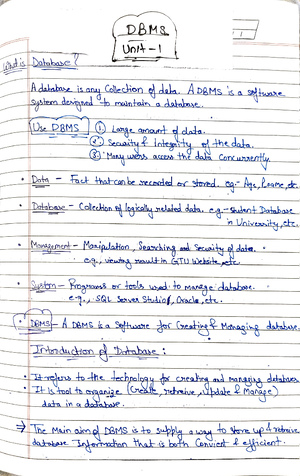 DBMS
Unit-1
What is Database?
A database is any Collection of data. A DBMS is a software
system designed to maintain a database.
Use DBMS ① Large amount of data.
② Security & Integrity of the data.
③ Many users access the data concurrently
• Data - Fact that can be recorded or stored. eg- Age, Name, etc.
• Database - Collection of logically related data. e.g- student Database
in University, etc.
• Management - Manipulation, Searching and Security of data.
e.g., viewing result in GTU Website, etc.
• System - Programs or tools used to manage database.
e.g., SQL Server Studio, Oracle, etc.
DBMS - A DBMS is a Software for Creating & Managing database.
Introduction of Database :
• It refers to the technology for creating and managing databases
• It is tool to organize (Create, retreive, Update & Manage)
data in a database.
→ The Main aim of DBMS is to supply a way to store up & retrieve
database Information that is both Convient & efficient.